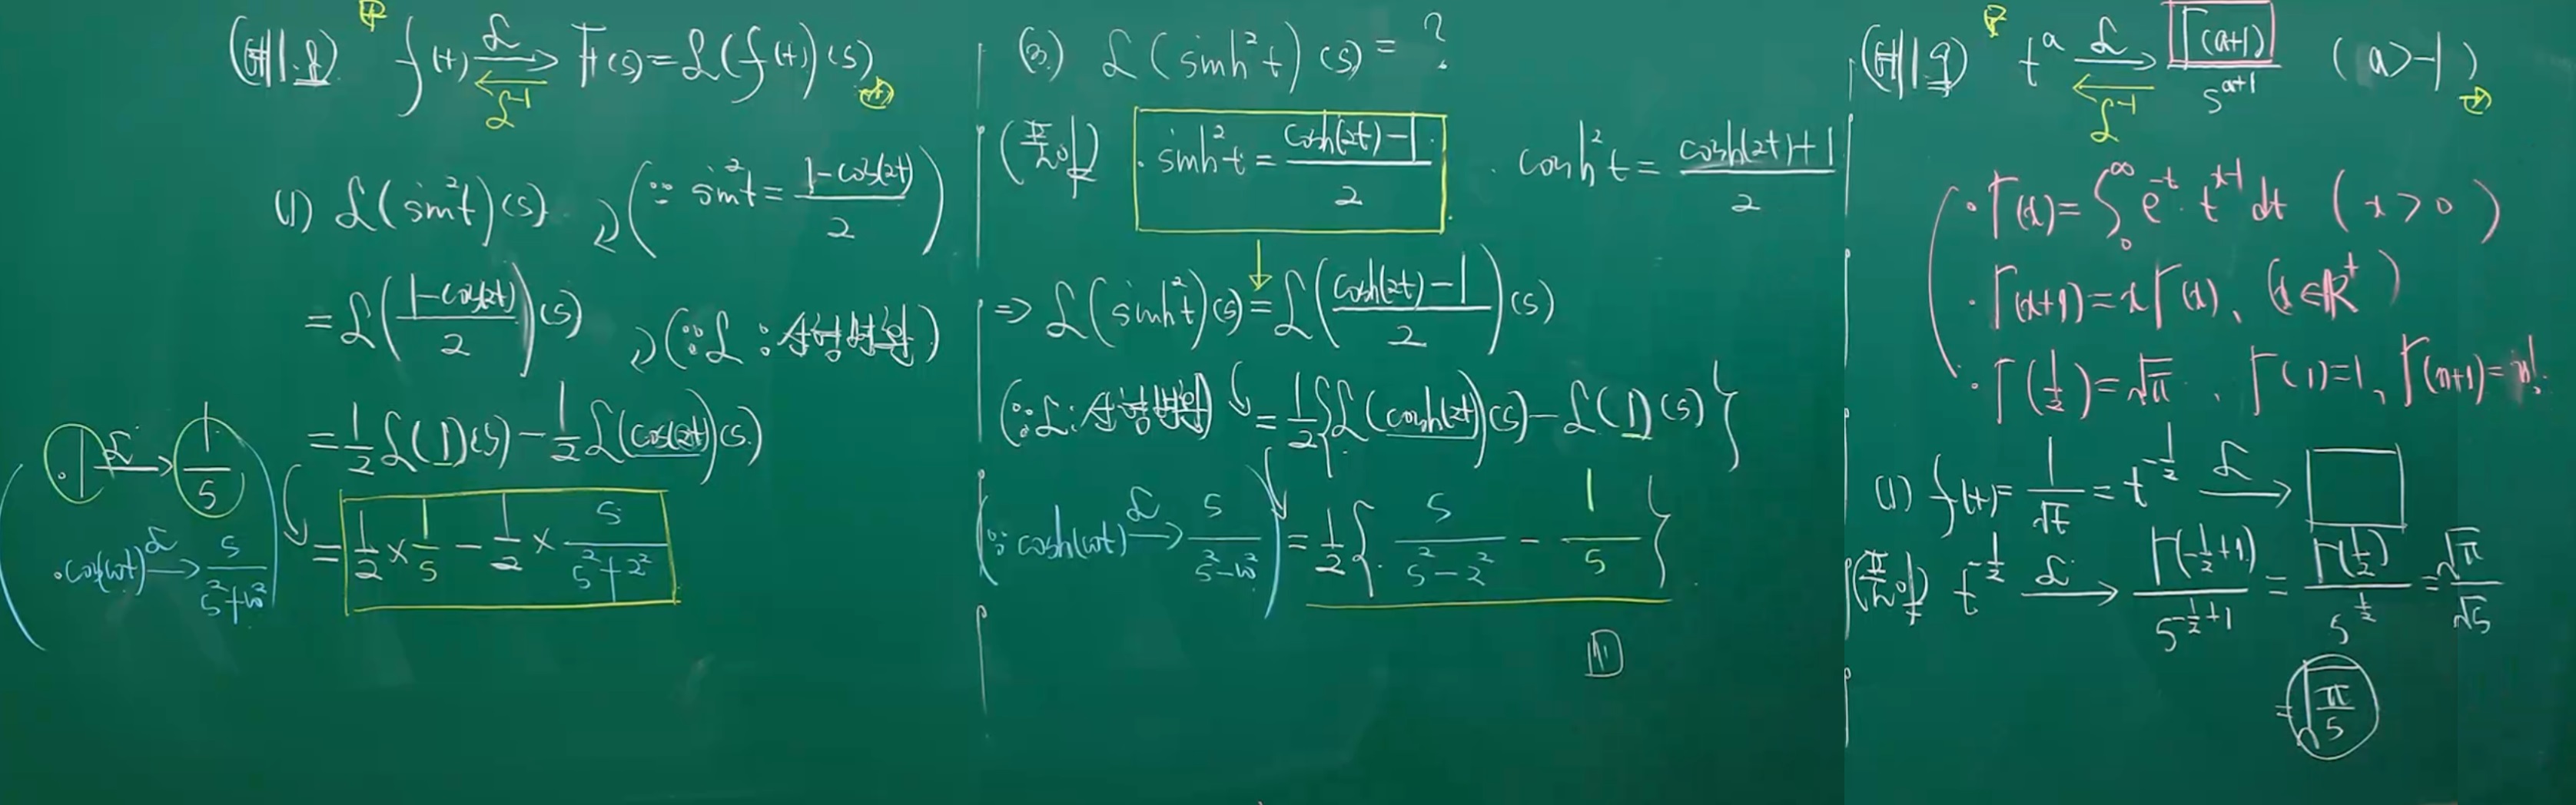 (예1.8) f(t) ⇄ F(s) = ℒ(f(t))(s)
ℒ
ℒ⁻¹
(1) ℒ(sin²t)(s) (∵ sin²t = (1-cos(2t))/2)
= ℒ((1-cos(2t))/2)(s) (∵ ℒ : 선형변환)
= 1/2 ℒ(1)(s) - 1/2 ℒ(cos(2t))(s)
= 1/2 × 1/s - 1/2 × s/(s²+2²)
· 1 —ℒ→ 1/s
· cos(wt) —ℒ→ s/(s²+w²)
(3) ℒ(sinh²t)(s) = ?
(풀이) · sinh²t = (cosh(2t)-1)/2 · cosh²t = (cosh(2t)+1)/2
⇒ ℒ(sinh²t)(s) = ℒ((cosh(2t)-1)/2)(s)
(∵ ℒ : 선형변환) = 1/2 {ℒ(cosh(2t))(s) - ℒ(1)(s)}
(∵ cosh(wt) —ℒ→ s/(s²-w²)) = 1/2 {s/(s²-2²) - 1/s}
(예1.9) tᵃ ⇄ Γ(a+1)/sᵃ⁺¹ (a>-1)
ℒ
ℒ⁻¹
· Γ(x) = ∫₀^∞ e⁻ᵗ · tˣ⁻¹ dt (x>0)
· Γ(x+1) = xΓ(x), (x∈ℝ⁺)
· Γ(1/2) = √π, Γ(1)=1, Γ(n+1)=n!
(1) f(t) = 1/√t = t^(-1/2) —ℒ→ □
(풀이) t^(-1/2) —ℒ→ Γ(-1/2+1)/s^(-1/2+1) = Γ(1/2)/s^(1/2) = √π/√s
= √(π/s)